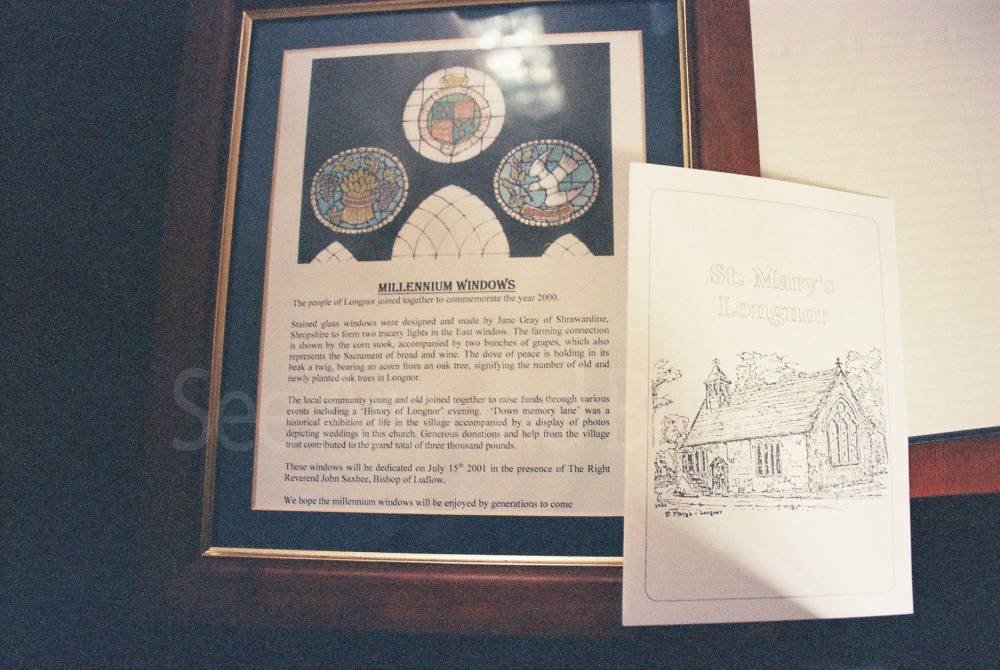 MILLENNIUM WINDOWS
The people of Longnor joined together to commemorate the year 2000.
Stained glass windows were designed and made by Jane Gray of Shrawardine,
Shropshire to form two tracery lights in the East window. The farming connection
is shown by the corn stook, accompanied by two bunches of grapes, which also
represents the Sacrament of bread and wine. The dove of peace is holding in its
beak a twig, bearing an acorn from an oak tree, signifying the number of old and
newly planted oak trees in Longnor.
The local community young and old joined together to raise funds through various
events including a ‘History of Longnor’ evening. ‘Down memory lane’ was a
historical exhibition of life in the village accompanied by a display of photos
depicting weddings in this church. Generous donations and help from the village
trust contributed to the grand total of three thousand pounds.
These windows will be dedicated on July 15th 2001 in the presence of The Right
Reverend John Saxbee, Bishop of Ludlow.
We hope the millennium windows will be enjoyed by generations to come
St. Mary's
Longnor
St Mary's - Longnor
See